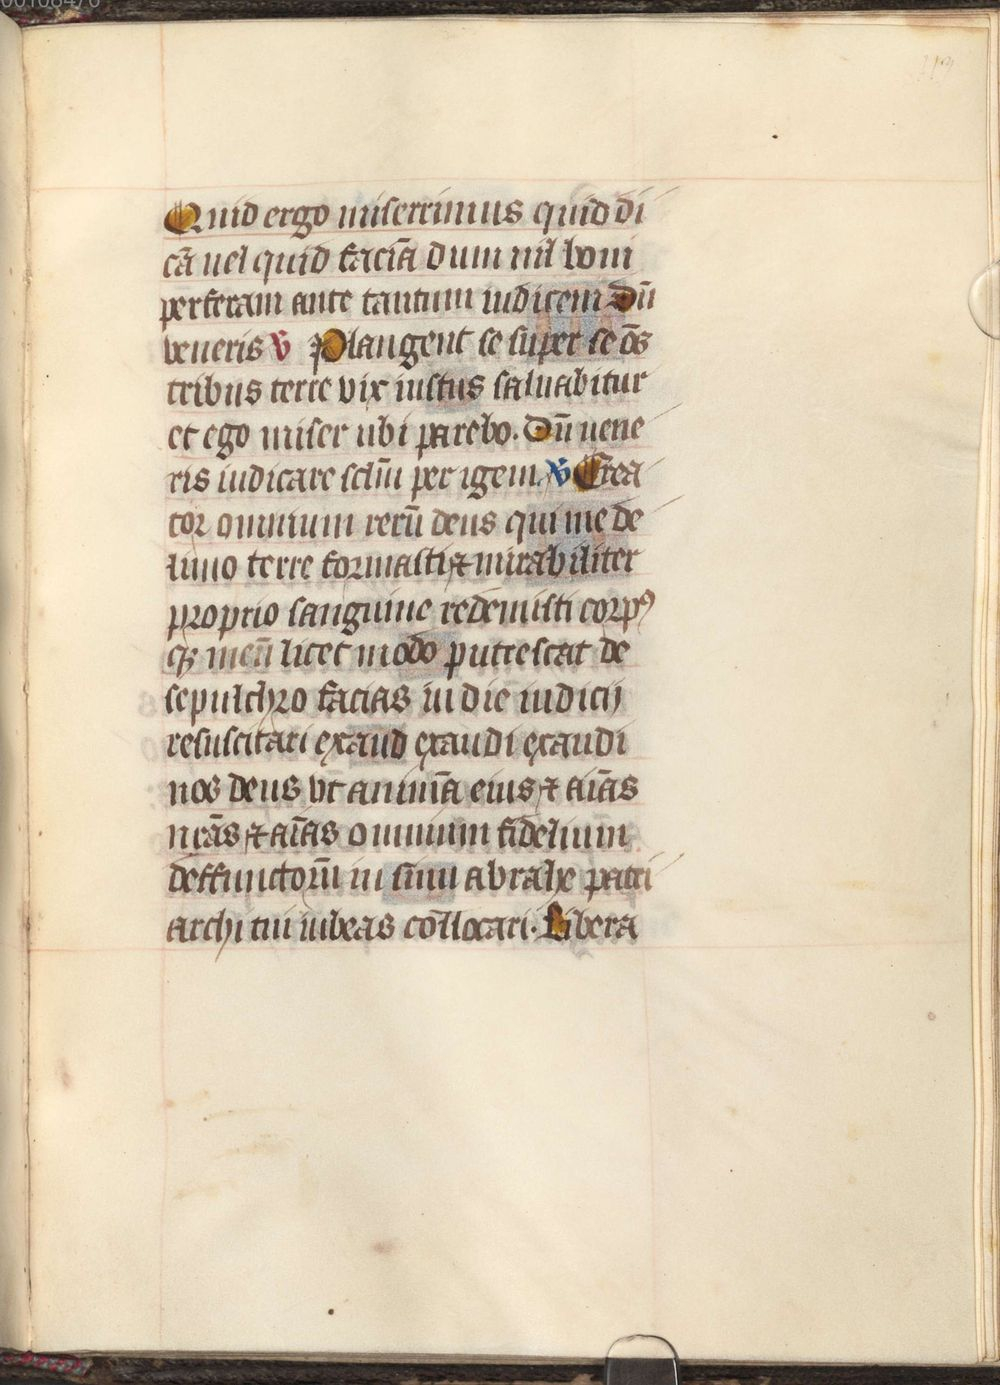 00108476
119
Quid ergo miserrimus quid di
cā uel quid faciā dum nil boni
perferam ante tantum iudicem Dū
veneris ℣ Plangent se super se ōs
tribus terre vix iustus saluabitur
et ego miser ubi parebo. Dū uene
ris iudicare sclm̄ per igem. ℣ Crea
tor omnium rerū deus qui me de
limo terre formasti ⁊ mirabiliter
proprio sanguine redemisti corpꝰ
qꝫ meū licet modo putrescat de
sepulchro facias in die iudicij
resuscitari exaud exaudi exaudi
nos deus vt animā eius ⁊ aīas
nrās ⁊ aīas omnium fidelium
deffunctorū in sinu abrahe patri
archi tui iubeas cōllocari. Libera